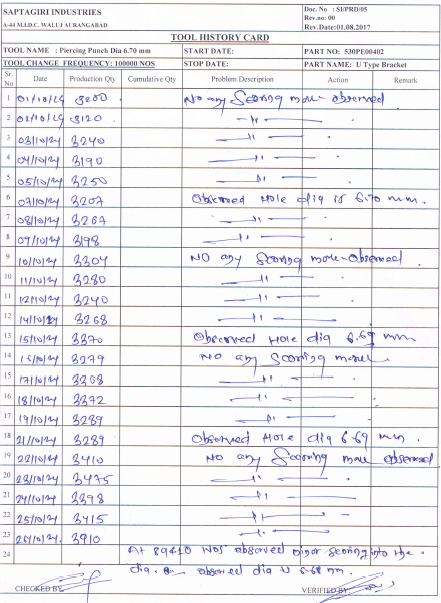 SAPTAGIRI INDUSTRIES
A-44 M.I.D.C. WALUJ AURANGABAD
Doc. No : SI/PRD/05
Rev.no: 00
Rev.Date:01.08.2017
TOOL HISTORY CARD
TOOL NAME : Piercing Punch Dia 6.70 mm START DATE: PART NO: 530PE00402
TOOL CHANGE FREQUENCY: 100000 NOS STOP DATE: PART NAME: U Type Bracket
Sr. No Date Production Qty Cumulative Qty Problem Description Action Remark
1 01/10/24 3200 No any Scoring mark observed
2 02/10/24 3120 —〃—
3 03/10/24 3240 —〃—
4 04/10/24 3190 —〃—
5 05/10/24 3250 —〃—
6 07/10/24 3207 Observed Hole dia is 6.70 mm.
7 08/10/24 3267 —〃—
8 09/10/24 3198 —〃—
9 10/10/24 3304 No any Scoring mark observed
10 11/10/24 3280 —〃—
11 12/10/24 3240 —〃—
12 14/10/24 3268 —〃—
13 15/10/24 3370 Observed Hole dia 6.69 mm
14 16/10/24 3279 No any Scoring mark
15 17/10/24 3268 —〃—
16 18/10/24 3372 —〃—
17 19/10/24 3289 —〃—
18 21/10/24 3289 Observed Hole dia 6.69 mm.
19 22/10/24 3410 No any Scoring mark observed
20 23/10/24 3475 —〃—
21 24/10/24 3398 —〃—
22 25/10/24 3415 —〃—
23 26/10/24. 3910 —〃—
24 At 89410 Nos observed minor scoring into the
dia. observed dia is 6.68 mm.
CHECKED BY: VERIFIED BY: